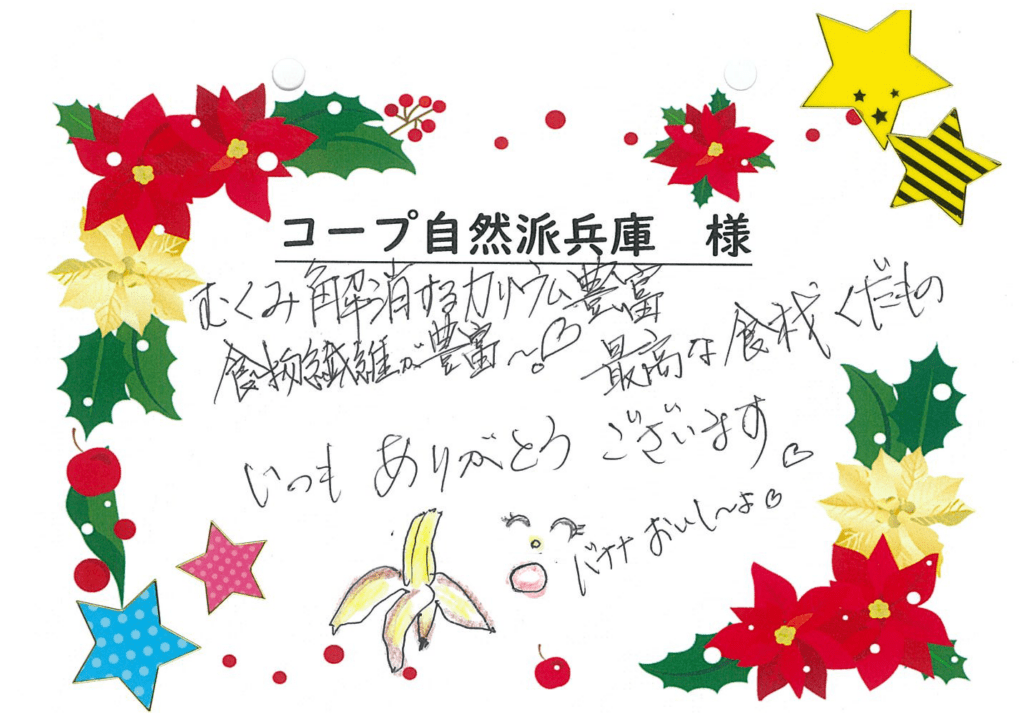 コープ自然派兵庫　様
むくみ解消するカリウム豊富
食物繊維が豊富〜♡
最高な食材くだもの
いつも ありがとう ございます♡
バナナおいし〜よ♡